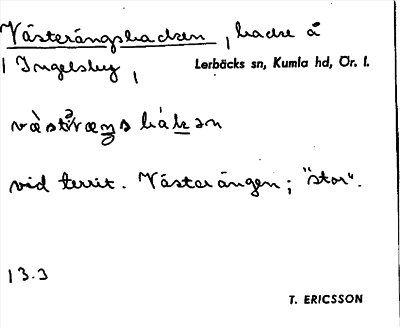 Västerängsbacken, backe å
Ingelsby,
Lerbäcks sn, Kumla hd, Ör. l.
vid territ. Västerängen; "stor".
13.3
T. ERICSSON